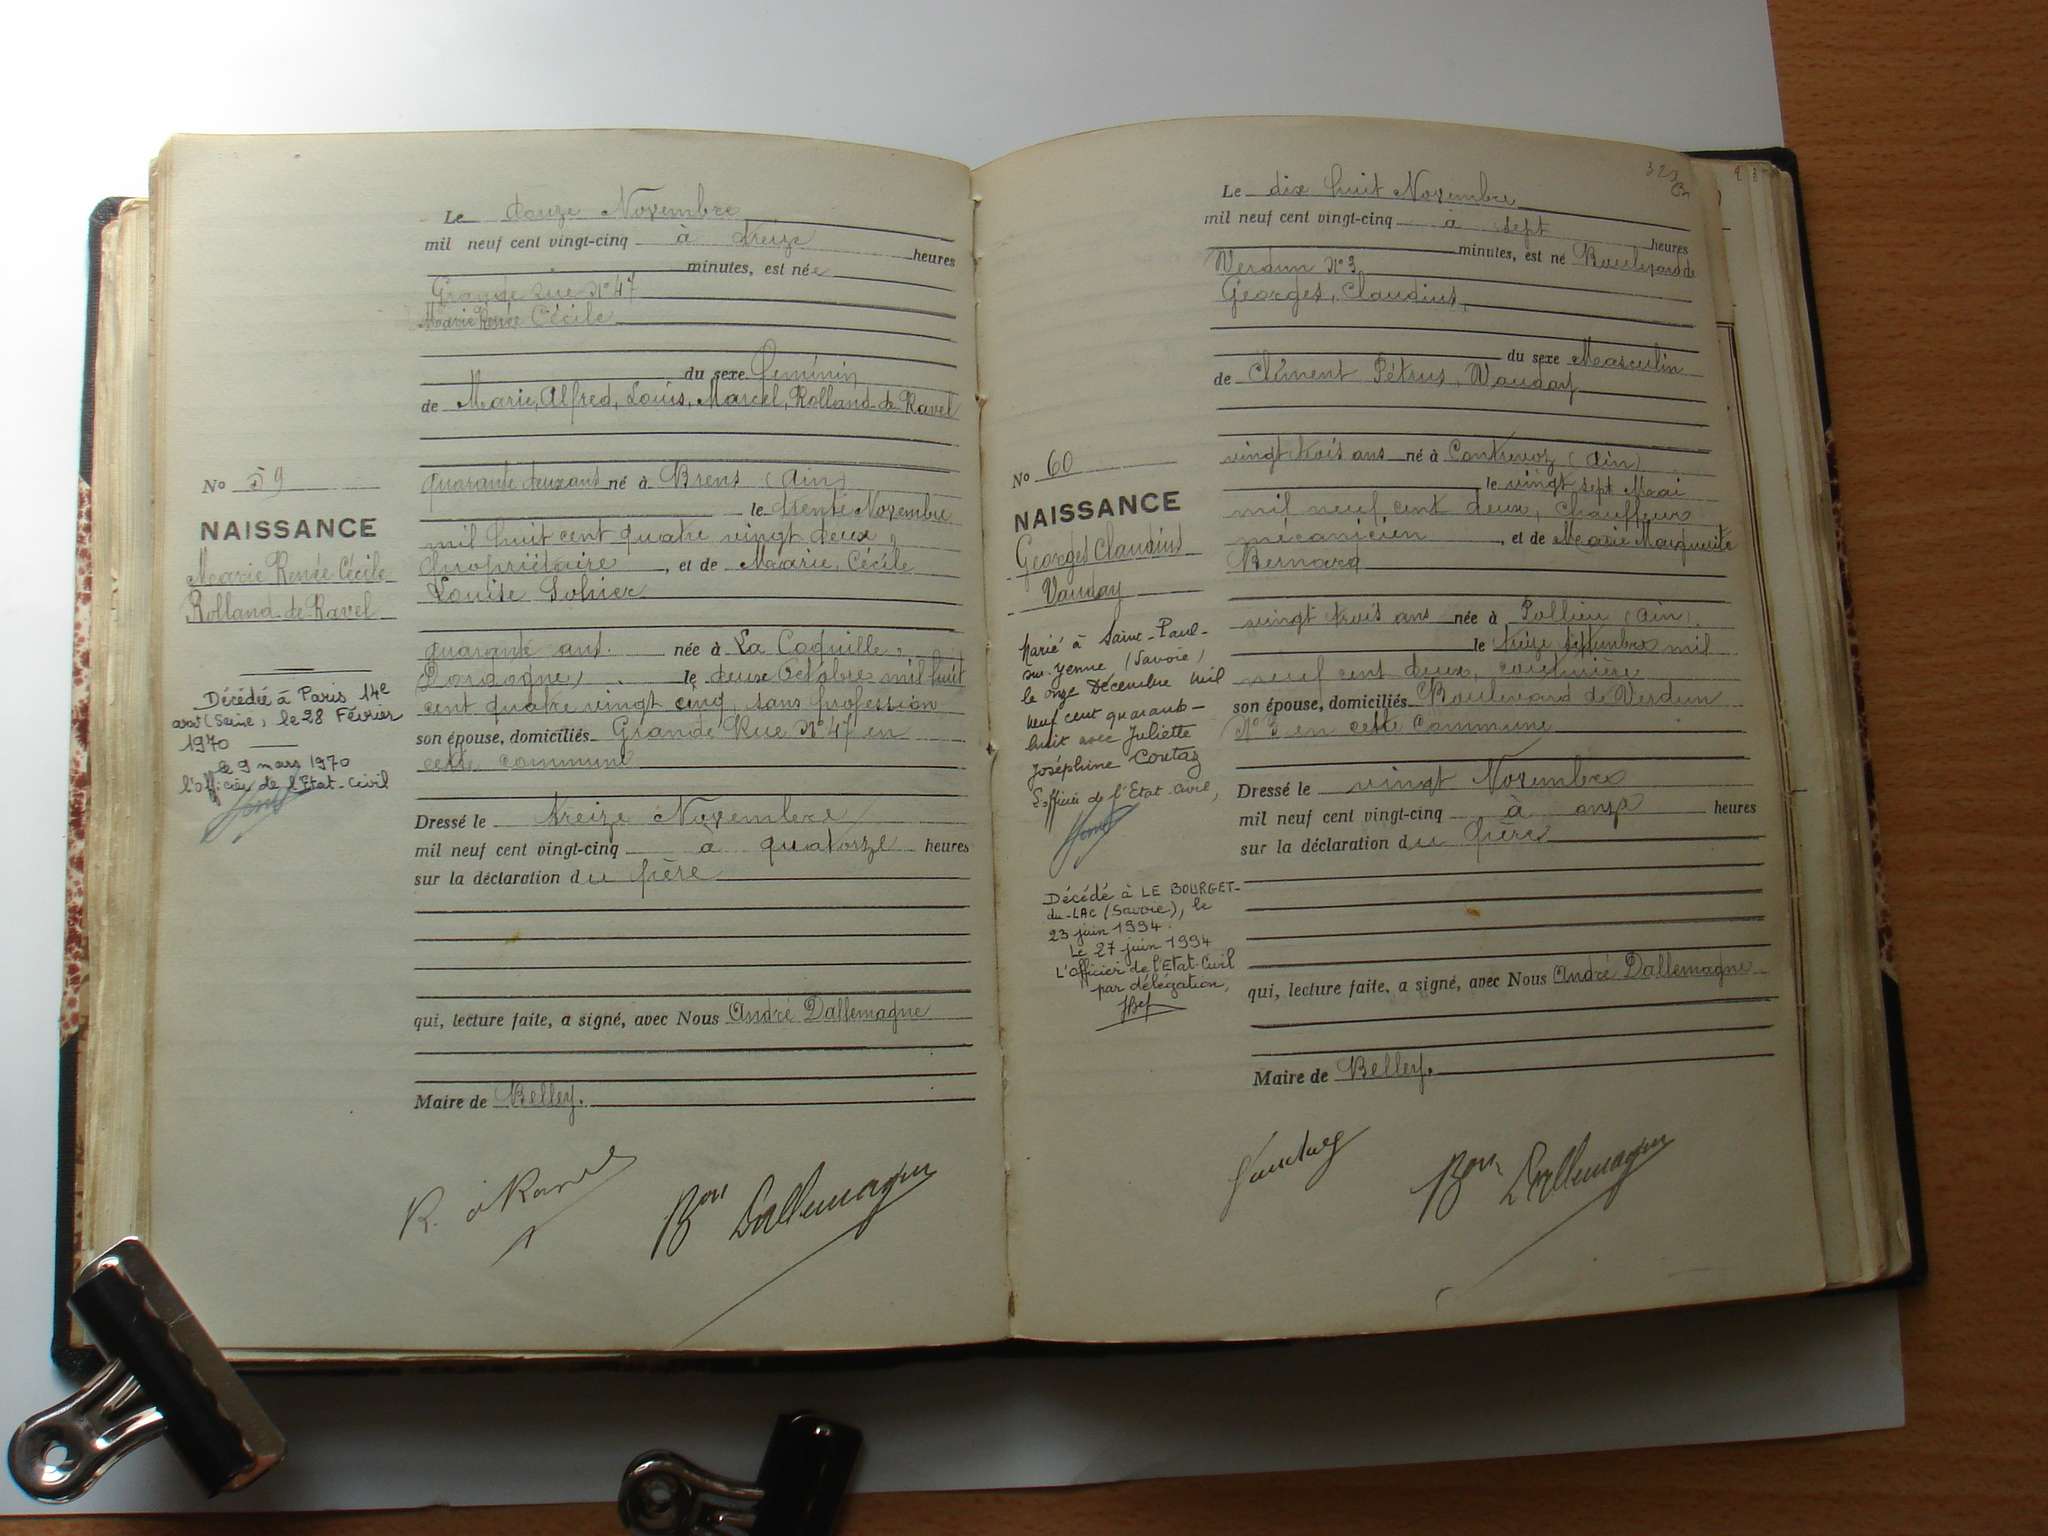 Le douze Novembre
mil neuf cent vingt-cinq à treize heures
minutes, est née
Grande rue N° 47
Marie Renée Cécile
du sexe féminin
de Marie, Alfred, Louis, Marcel, Rolland de Ravel
No 59
quarante deux ans né à Brens (Ain)
le trente Novembre
NAISSANCE
mil huit cent quatre vingt deux,
Marie Renée Cécile
propriétaire, et de Marie, Cécile
Rolland de Ravel
Louise Sohier
quarante ans née à La Coquille,
(Dordogne) le deux Octobre mil huit
cent quatre vingt cinq, sans profession
son épouse, domiciliés Grande Rue N° 47 en
cette commune
Décédée à Paris 14e
arrt (Seine), le 28 Février
1970
le 9 mars 1970
l'officier de l'Etat-Civil
Dressé le treize Novembre
mil neuf cent vingt-cinq à quatorze heures
sur la déclaration du père
qui, lecture faite, a signé, avec Nous André Dallemagne
Maire de Belley.
R. de Ravel
Bon Dallemagne
Le dix huit Novembre
mil neuf cent vingt-cinq à sept heures
minutes, est né Boulevard de
Verdun N° 3
Georges, Claudius,
du sexe Masculin
de Clément Pétrus, Vauday
No 60
vingt trois ans né à Contrevoz (Ain)
le vingt sept Mai
NAISSANCE
mil neuf cent deux, chauffeur
Georges Claudius
mécanicien, et de Marie Marguerite
Vauday
Bernard
vingt trois ans née à Pollieu (Ain)
le treize septembre mil
neuf cent deux, couturière
son épouse, domiciliés Boulevard de Verdun
N° 3 en cette commune
Marié à Saint-Paul-
sur-Yenne (Savoie)
le onze Décembre mil
neuf cent quarante-
huit avec Juliette
Joséphine Coutaz
L'officier de l'Etat-Civil,
Dressé le vingt Novembre
mil neuf cent vingt-cinq à onze heures
sur la déclaration du père
Décédé à LE BOURGET-
du-LAC (Savoie), le
23 juin 1994.
Le 27 juin 1994
L'Officier de l'Etat-Civil
par délégation,
qui, lecture faite, a signé, avec Nous André Dallemagne
Maire de Belley.
Vauday
Bon Dallemagne